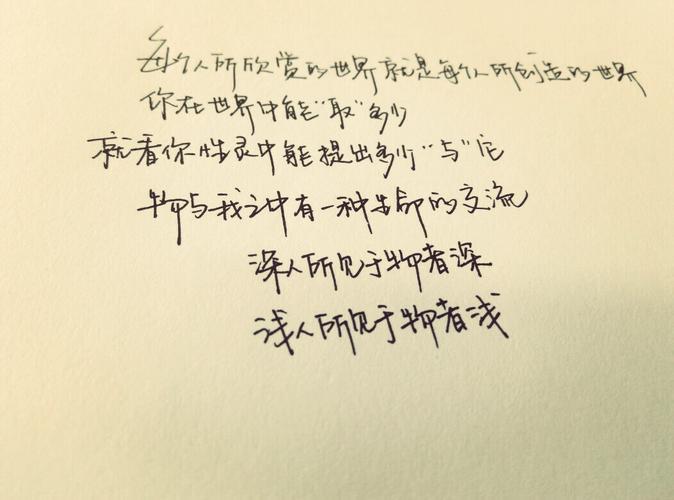 每个人所欣赏的世界就是每个人所创造的世界
你在世界中能“取”多少
就看你性灵中能提出多少“与”它
物与我之中有一种生命的交流
深人所见于物者深
浅人所见于物者浅